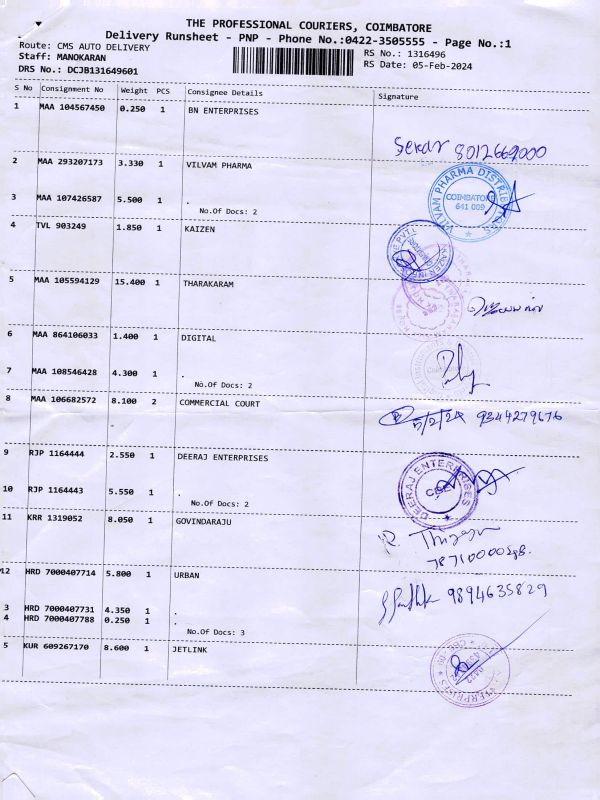 THE PROFESSIONAL COURIERS, COIMBATORE
Delivery Runsheet - PNP - Phone No.:0422-3505555 - Page No.:1
Route: CMS AUTO DELIVERY
RS No.: 1316496
Staff: MANOKARAN
RS Date: 05-Feb-2024
DRS No.: DCJB131649601
S No Consignment No Weight PCS Consignee Details Signature
1 MAA 104567450 0.250 1 BN ENTERPRISES
Sekar 8012669000
2 MAA 293207173 3.330 1 VILVAM PHARMA
VILVAM PHARMA
COIMBATORE
641 009
3 MAA 107426587 5.500 1 .
No.Of Docs: 2
4 TVL 903249 1.850 1 KAIZEN
5 MAA 105594129 15.400 1 THARAKARAM
6 MAA 864106033 1.400 1 DIGITAL
7 MAA 108546428 4.300 1 .
No.Of Docs: 2
8 MAA 106682572 8.100 2 COMMERCIAL COURT
5/2/24 9344279676
-
9 RJP 1164444 2.550 1 DEERAJ ENTERPRISES
DEERAJ ENTERPRISES
10 RJP 1164443 5.550 1 .
No.Of Docs: 2
11 KRR 1319052 8.050 1 GOVINDARAJU
12 HRD 7000407714 5.800 1 URBAN
9894635829
3 HRD 7000407731 4.350 1 .
4 HRD 7000407788 0.250 1 .
No.Of Docs: 3
5 KUR 609267170 8.600 1 JETLINK